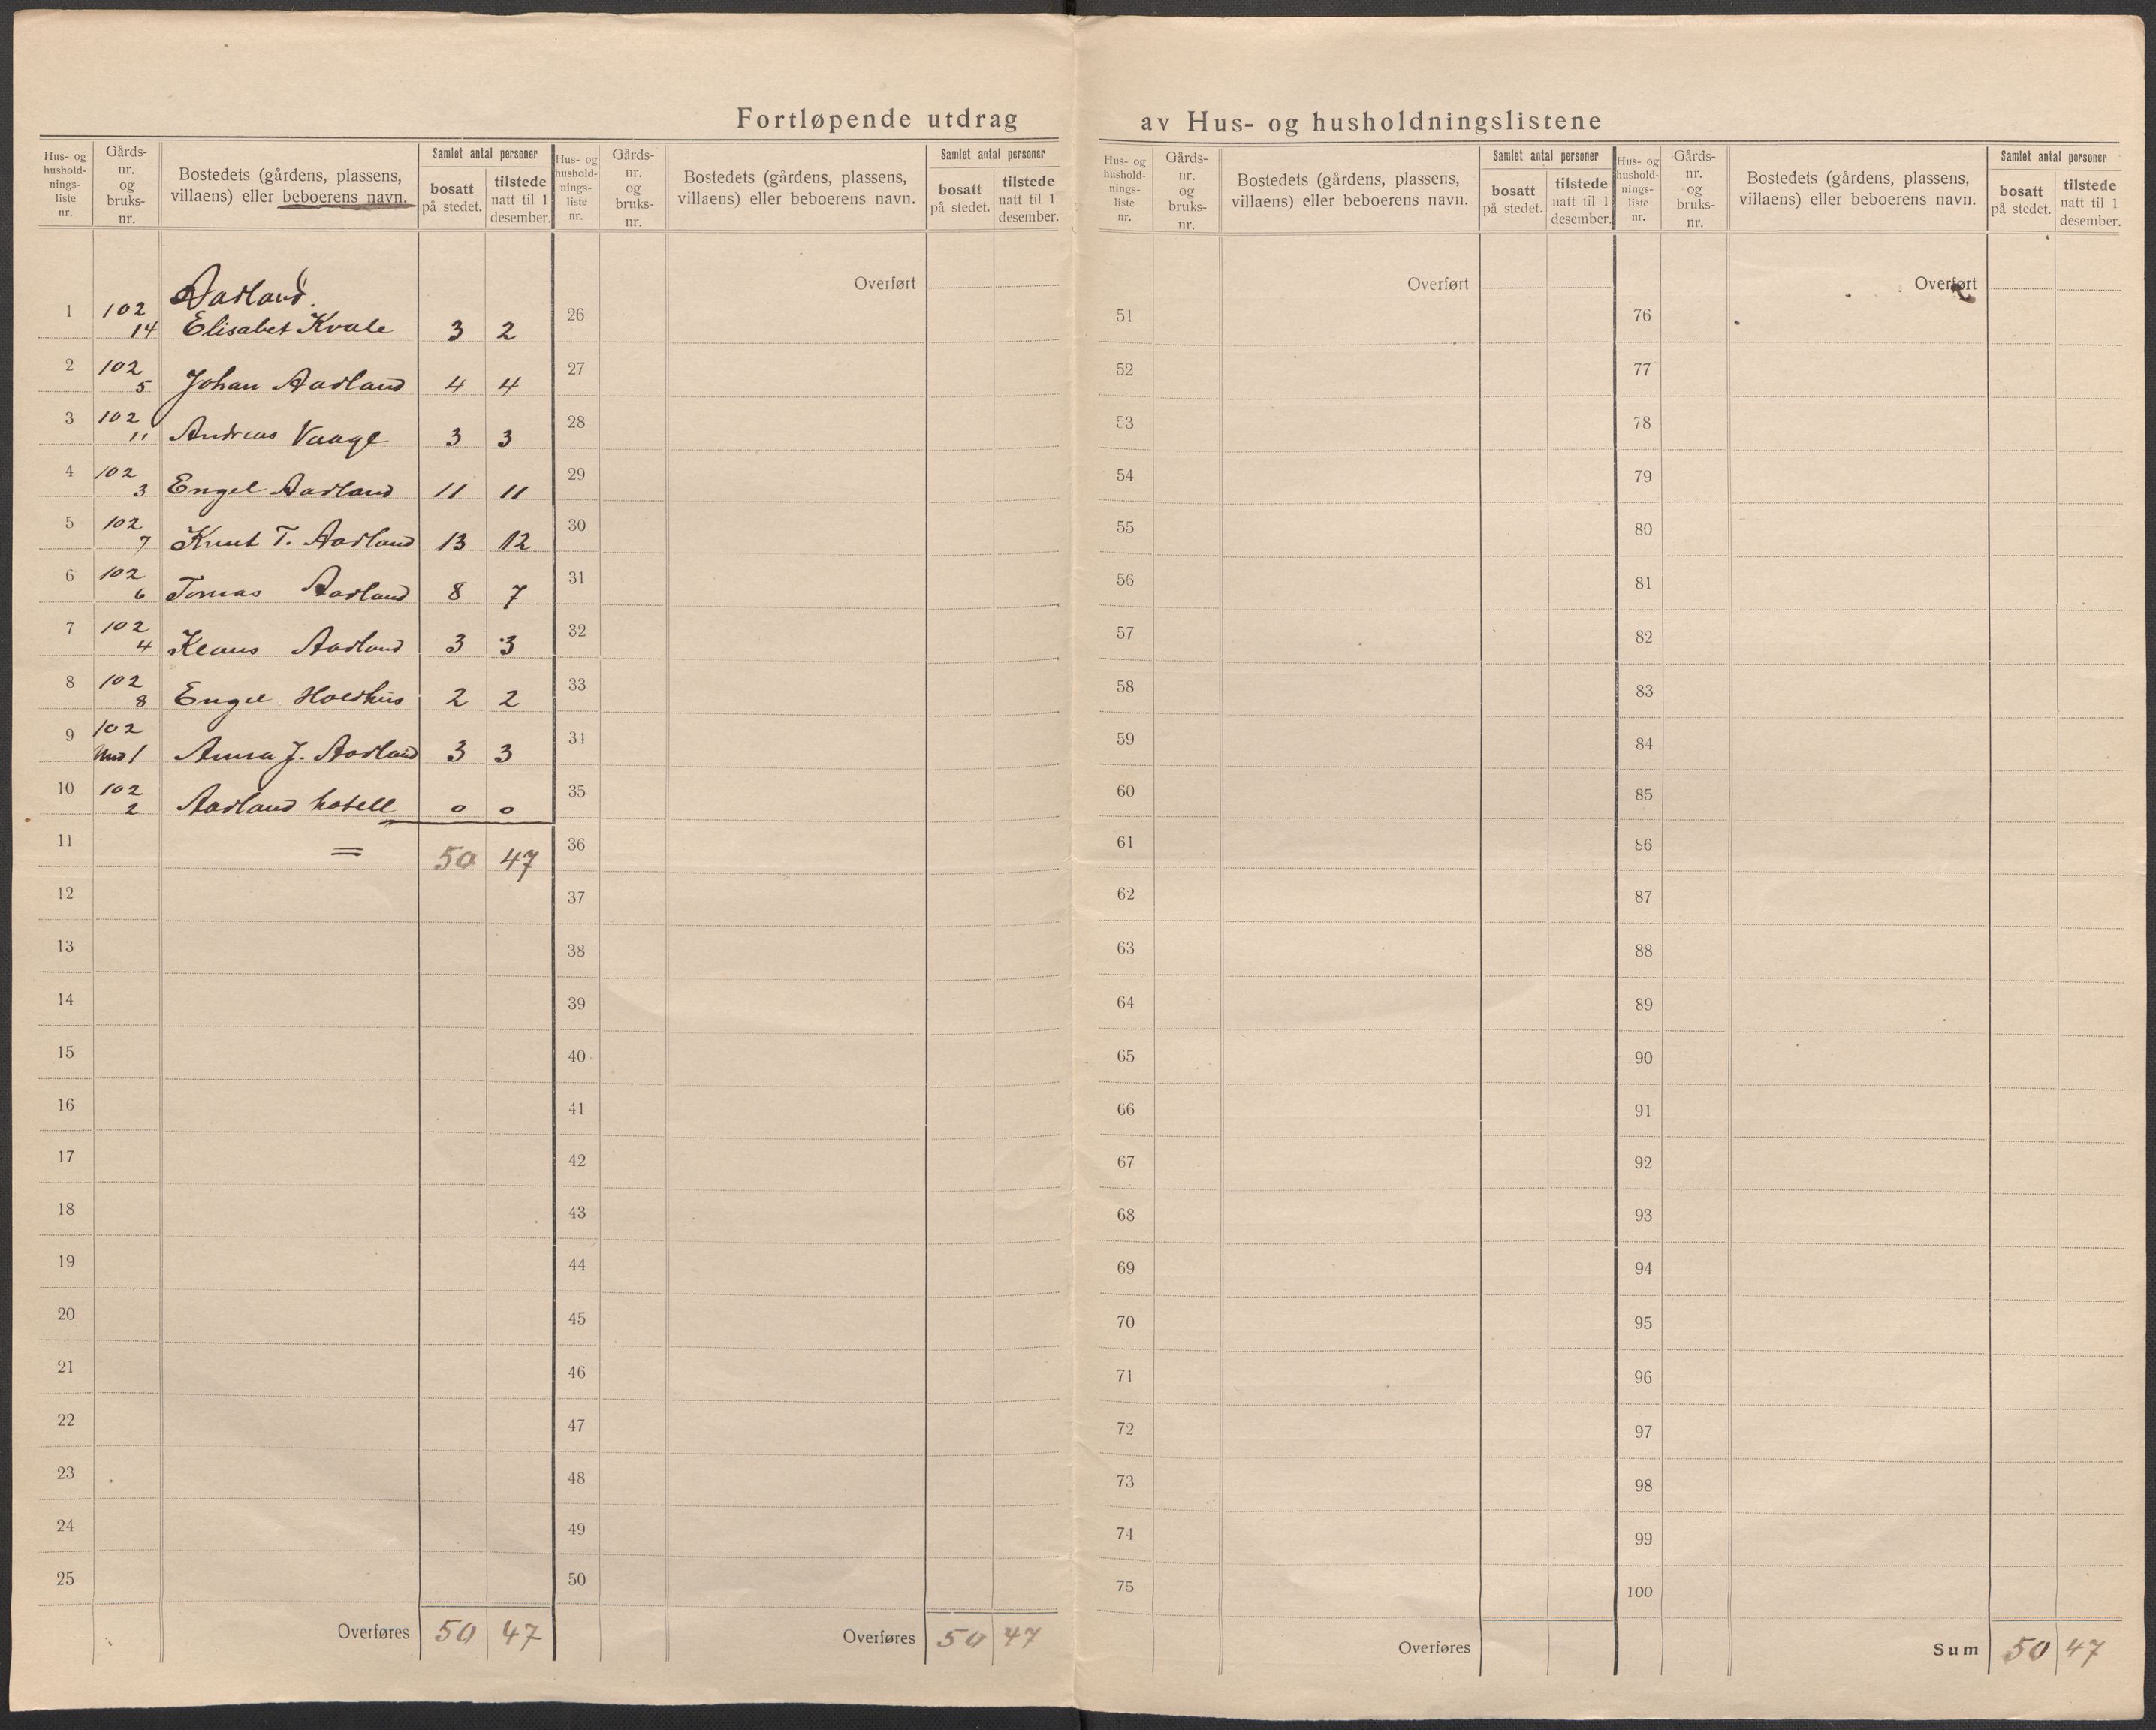 Fortløpende utdrag av Hus- og husholdningslistene
Hus- og hushold-nings-liste nr.
Gårds-nr. og bruks-nr.
Bostedets (gårdens, plassens, villaens) eller beboerens navn.
Samlet antal personer
bosatt på stedet.
tilstede natt til 1 desember.
Hus- og hushold-nings-liste nr.
Gårds-nr. og bruks-nr.
Bostedets (gårdens, plassens, villaens) eller beboerens navn.
Samlet antal personer
bosatt på stedet.
tilstede natt til 1 desember.
Hus- og hushold-nings-liste nr.
Gårds-nr. og bruks-nr.
Bostedets (gårdens, plassens, villaens) eller beboerens navn.
Samlet antal personer
bosatt på stedet.
tilstede natt til 1 desember.
Hus- og hushold-nings-liste nr.
Gårds-nr. og bruks-nr.
Bostedets (gårdens, plassens, villaens) eller beboerens navn.
Samlet antal personer
bosatt på stedet.
tilstede natt til 1 desember.
Aadland.
1 102 14 Elisabet Kvale 3 2
2 102 5 Johan Aadland 4 4
3 102 11 Andreas Vaage 3 3
4 102 3 Engel Aadland 11 11
5 102 7 Knut T. Aadland 13 12
6 102 6 Tomas Aadland 8 7
7 102 4 Klaus Aadland 3 3
8 102 8 Engel Holdhus 2 2
9 102 1 Anna J. Aadland 3 3
10 102 2 Aadland hotell 0 0
11 = 50 47
12
13
14
15
16
17
18
19
20
21
22
23
24
25
Overføres 50 47
Overført
26
27
28
29
30
31
32
33
34
35
36
37
38
39
40
41
42
43
44
45
46
47
48
49
50
Overføres 50 47
Overført
51
52
53
54
55
56
57
58
59
60
61
62
63
64
65
66
67
68
69
70
71
72
73
74
75
Overføres
Overført
76
77
78
79
80
81
82
83
84
85
86
87
88
89
90
91
92
93
94
95
96
97
98
99
100
Sum 50 47